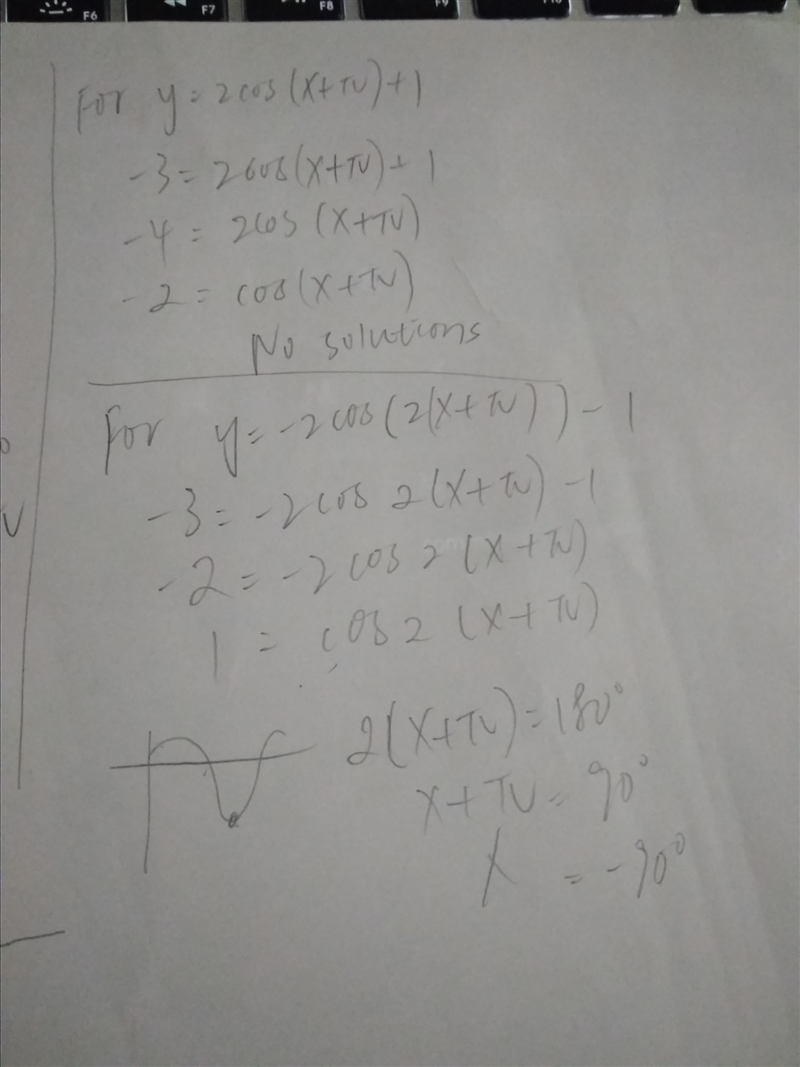 F6 F7 F8 F9 F10
For y = 2cos(x+π)+1
-3 = 2cos(x+π)+1
-4 = 2cos(x+π)
-2 = cos(x+π)
No solutions
For y = -2cos(2(x+π))-1
-3 = -2cos 2(x+π)-1
-2 = -2cos 2(x+π)
1 = cos 2(x+π)
2(x+π) = 180°
x+π = 90°
x = -90°